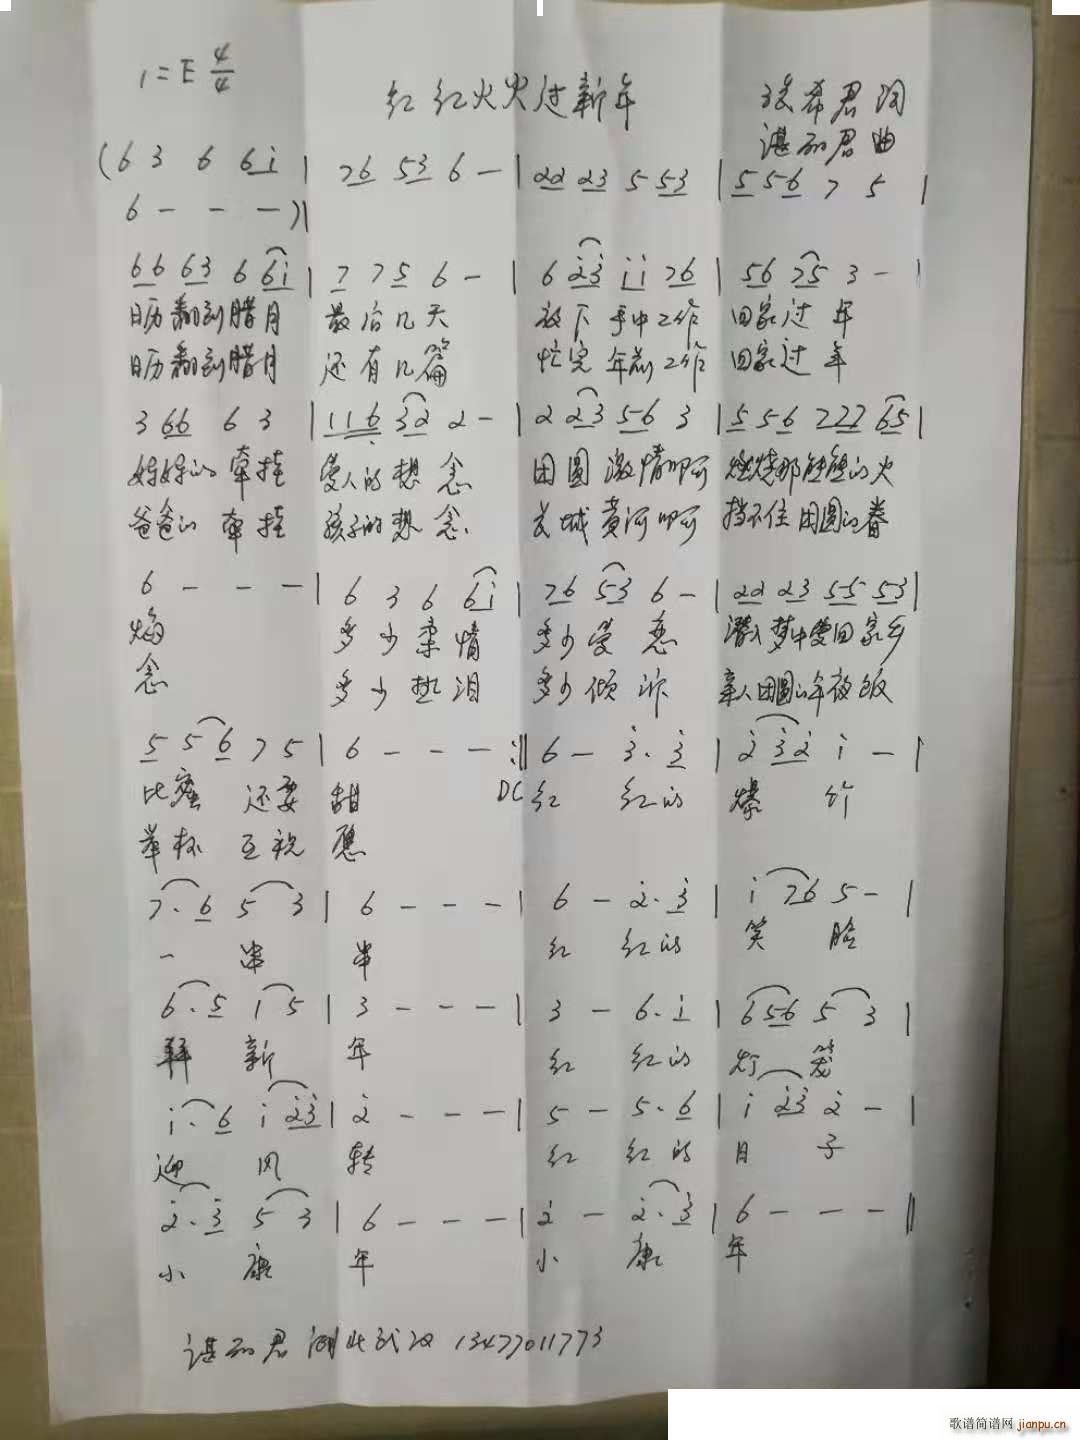 1=E 4/4
红红火火过新年
希君词
谌丽君曲
(6 3 6 6i | 76 53 6 - | 22 23 5 53 | 5 56 7 5 |
6 - - -)‖
66 63 6 6i | 7 75 6 - | 6 23 ii 76 | 56 75 3 - |
日历翻到腊月 最后几天 放下手中工作 回家过年
日历翻到腊月 还有几篇 忙完年前工作 回家过年
3 66 6 3 | 116 32 2 - | 2 23 56 3 | 5 56 777 65 |
妈妈的牵挂 爱人的想念 团圆激情啊 燃烧那熊熊的火
爸爸的牵挂 孩子的想念 长城黄河啊 挡不住团圆的眷
6 - - - | 6 3 6 6i | 76 53 6 - | 22 23 55 53 |
焰 多少柔情 多少爱恋 潜入梦中爱回家乡
念 多少热泪 多少倾诉 亲人团圆的年夜饭
5 56 75 | 6 - - - :‖ 6 - 3. 3 | 2 32 i - |
比蜜还要甜 DC 红红的爆竹
举杯互祝愿
7. 6 5 3 | 6 - - - | 6 - 2. 3 | i 76 5 - |
一串串 红红的笑脸
6. 5 1 5 | 3 - - - | 3 - 6. i | 6 56 5 3 |
拜新年 红红的灯笼
i. 6 i 23 | 2 - - - | 5 - 5. 6 | i 23 2 - |
迎风转 红红的日子
2. 3 5 3 | 6 - - - | 2 - 2. 3 | 6 - - - ‖
小康年 小康年
谌丽君 湖北武汉 13477011773
歌谱简谱网 jianpu.cn